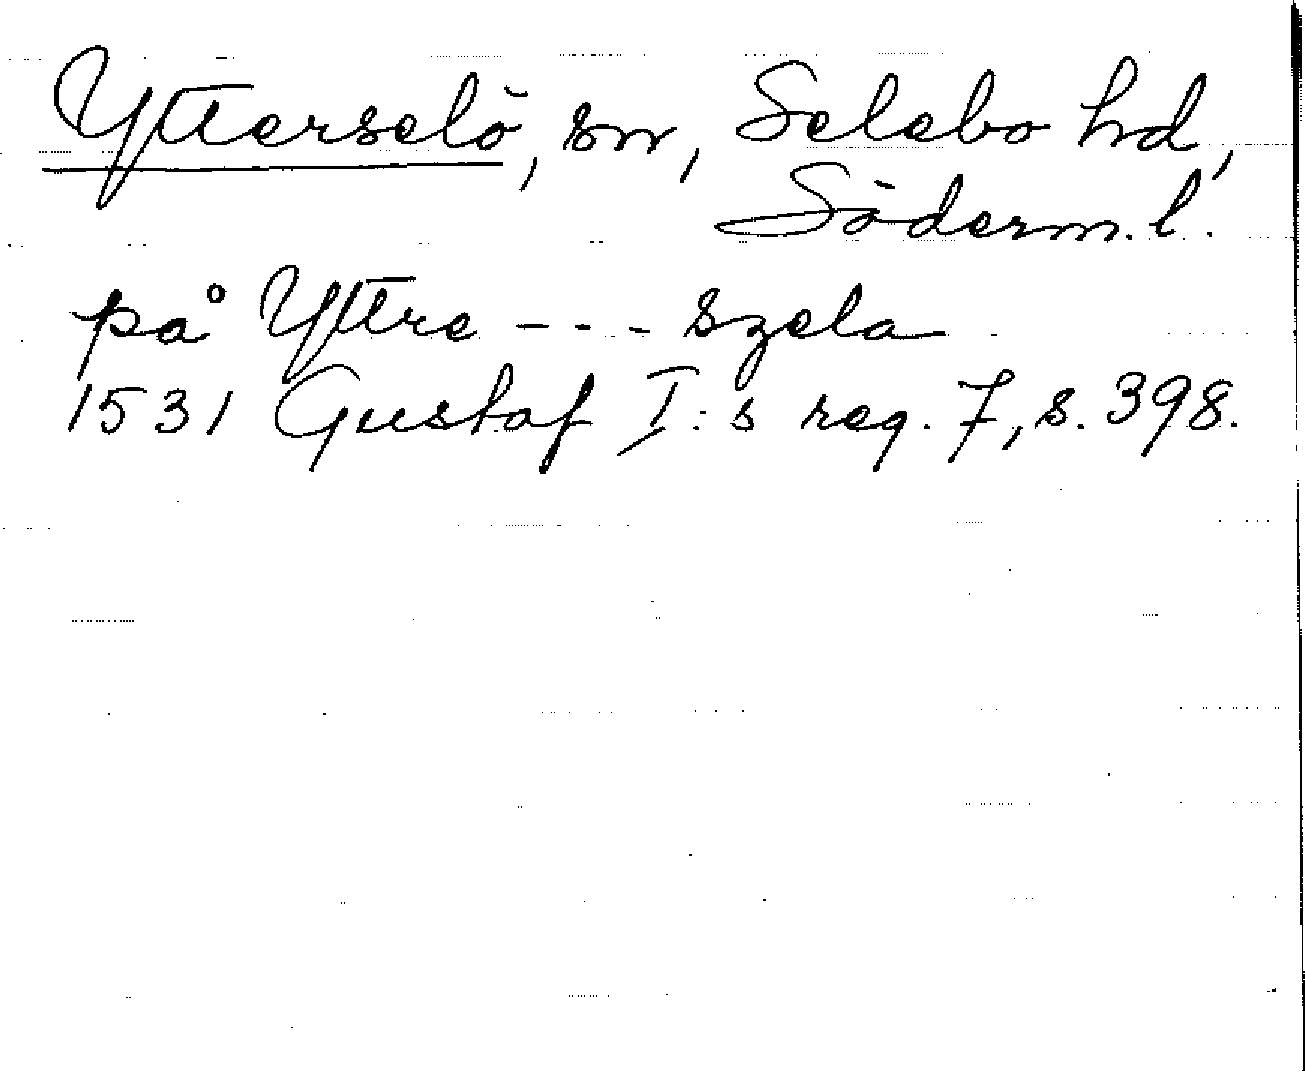 Ytterselö, sn, Selebo hd,
Söderm. l.
på Yttre - - - szela
1531 Gustaf I:s reg. 7, s. 398.